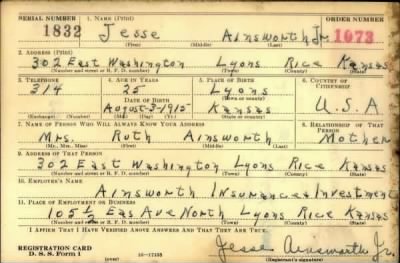 SERIAL NUMBER 1. NAME (Print) ORDER NUMBER
1832 Jesse Ainsworth Jr. 1073
(First) (Middle) (Last)
2. ADDRESS (Print)
302 East Washington Lyons Rice Kansas
(Number and street or R. F. D. number) (Town) (County) (State)
3. TELEPHONE 4. AGE IN YEARS 5. PLACE OF BIRTH 6. COUNTRY OF CITIZENSHIP
314 25 Lyons
DATE OF BIRTH (Town or county)
August-3-1915 Kansas U.S.A
(Exchange) (Number) (Mo.) (Day) (Yr.) (State or country)
7. NAME OF PERSON WHO WILL ALWAYS KNOW YOUR ADDRESS 8. RELATIONSHIP OF THAT PERSON
Mrs. Ruth Ainsworth Mother
(Mr., Mrs., Miss) (First) (Middle) (Last)
9. ADDRESS OF THAT PERSON
302 East Washington Lyons Rice Kansas
(Number and street or R. F. D. number) (Town) (County) (State)
10. EMPLOYER'S NAME
Ainsworth Insurance & Investment
11. PLACE OF EMPLOYMENT OR BUSINESS
105½ Eas Ave North Lyons Rice Kansas
(Number and street or R. F. D. number) (Town) (County) (State)
I AFFIRM THAT I HAVE VERIFIED ABOVE ANSWERS AND THAT THEY ARE TRUE.
REGISTRATION CARD Jesse Ainsworth Jr.
D. S. S. Form 1 16—17105 (Registrant's signature)